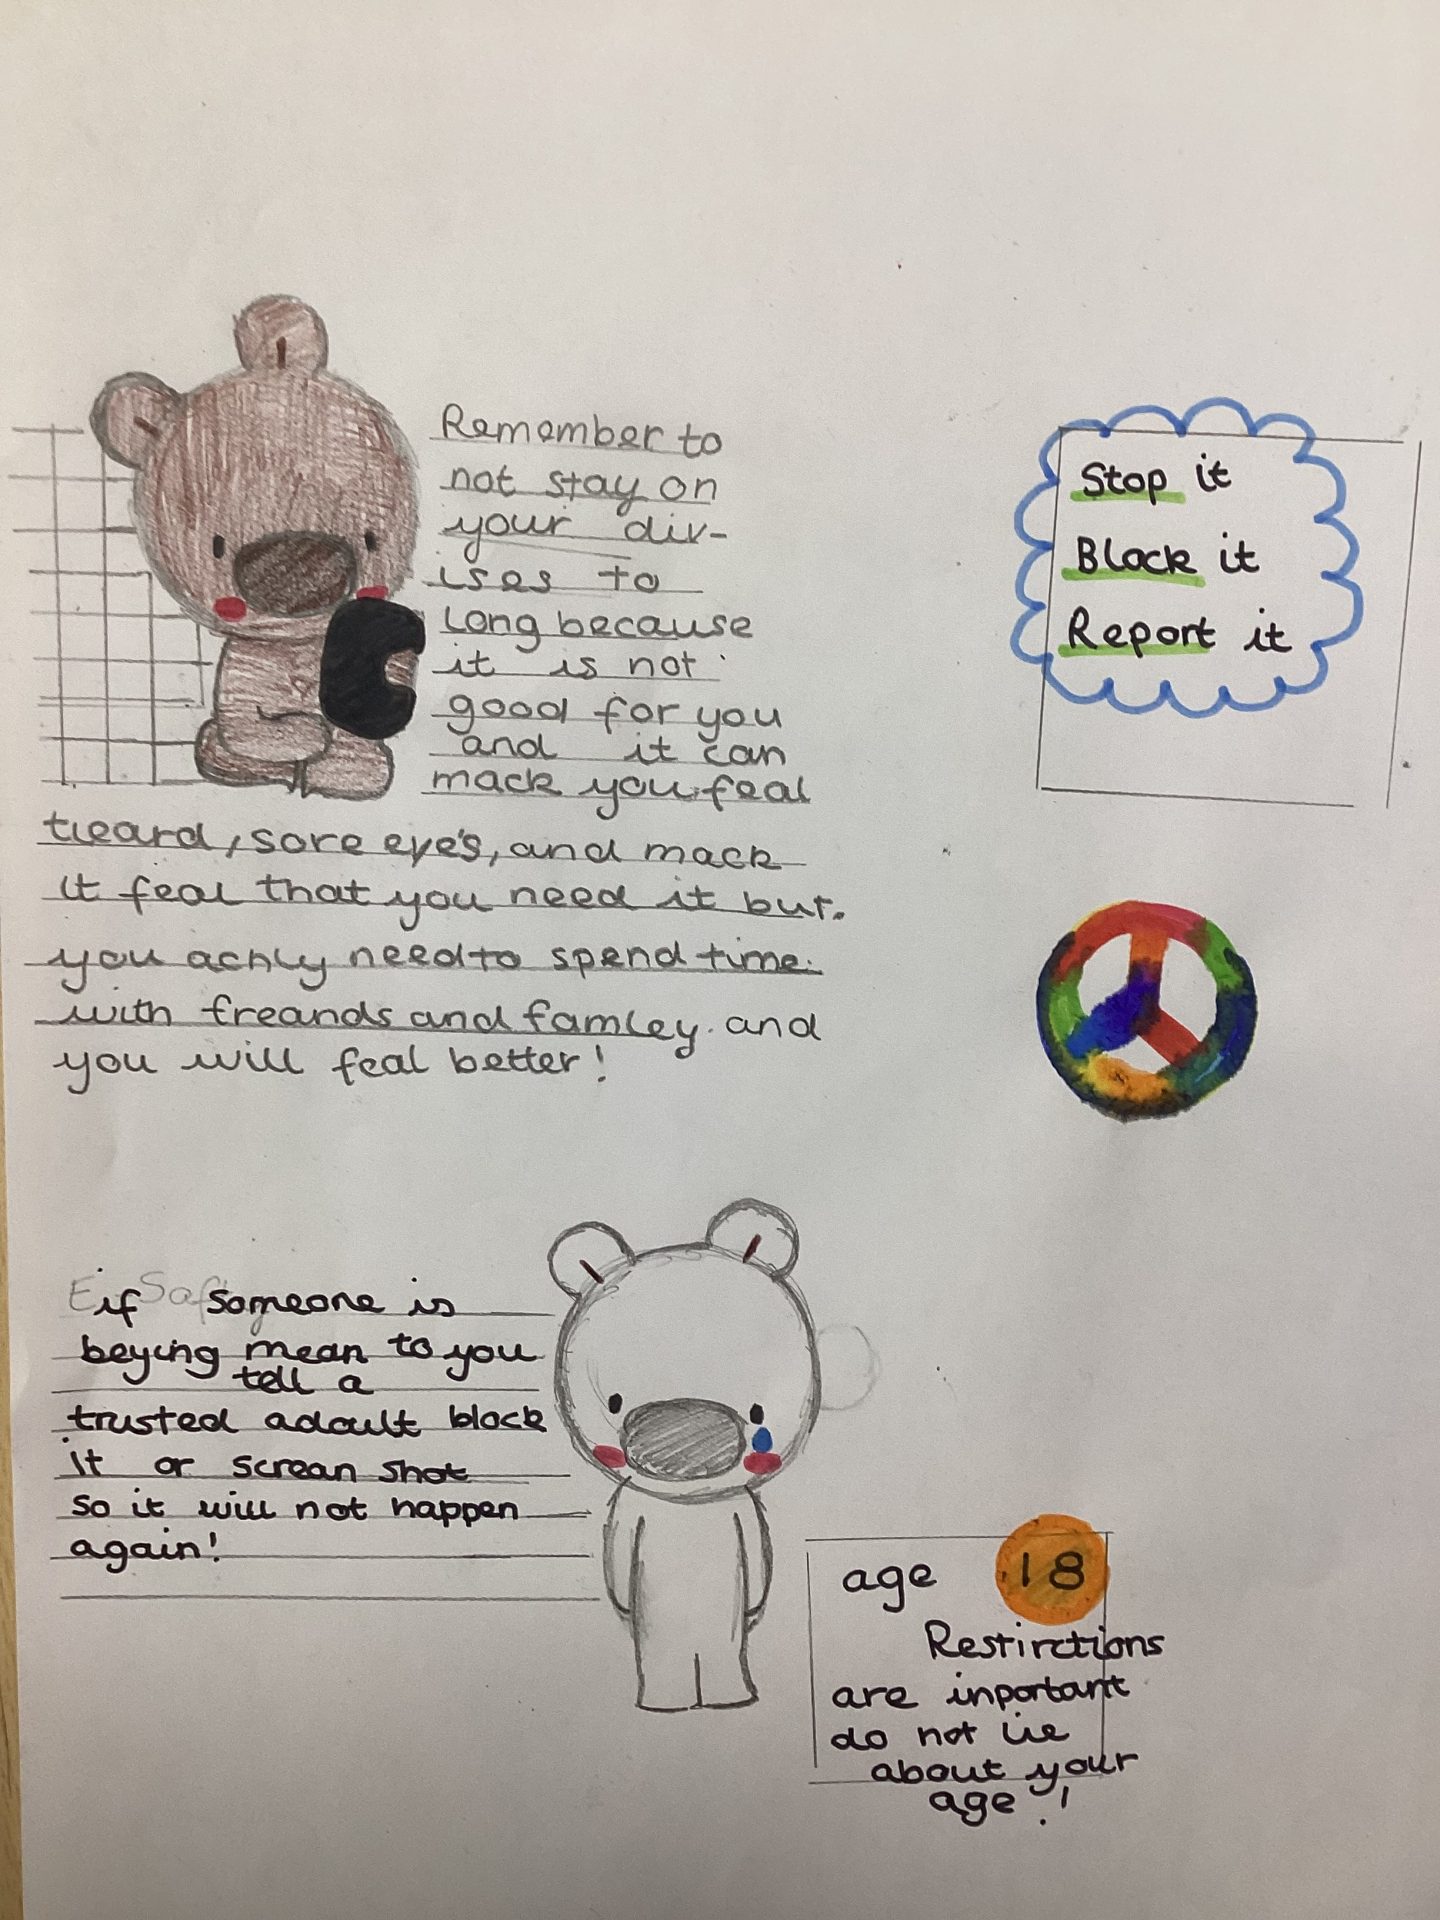 Remember to
not stay on
your div-
ises to
long because
it is not
good for you
and it can
mack you feal
tieard, sore eye's, and mack
it feal that you need it but.
you achly need to spend time.
with freands and famley. and
you will feal better!
Stop it
Block it
Report it
if someone is
beying mean to you
tell a
trusted adault block
it or screan shot
so it will not happen
again!
age 18
Restirctions
are inportant
do not lie
about your
age!